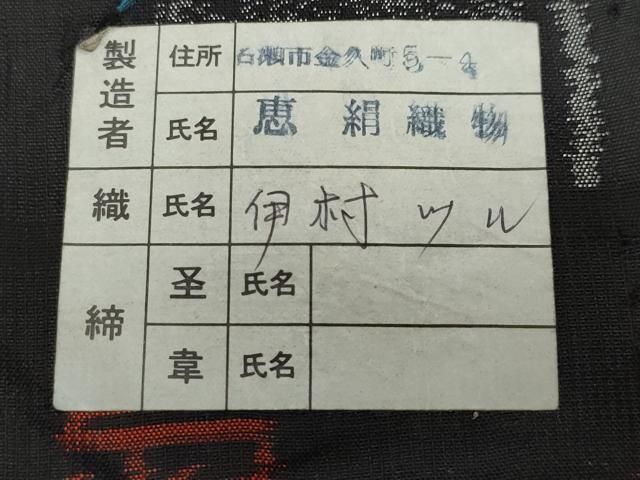 製造者
住所 名瀬市金久町5ー
氏名 恵 絹織物
織 氏名 伊村 ツル
締
圣 氏名
韋 氏名